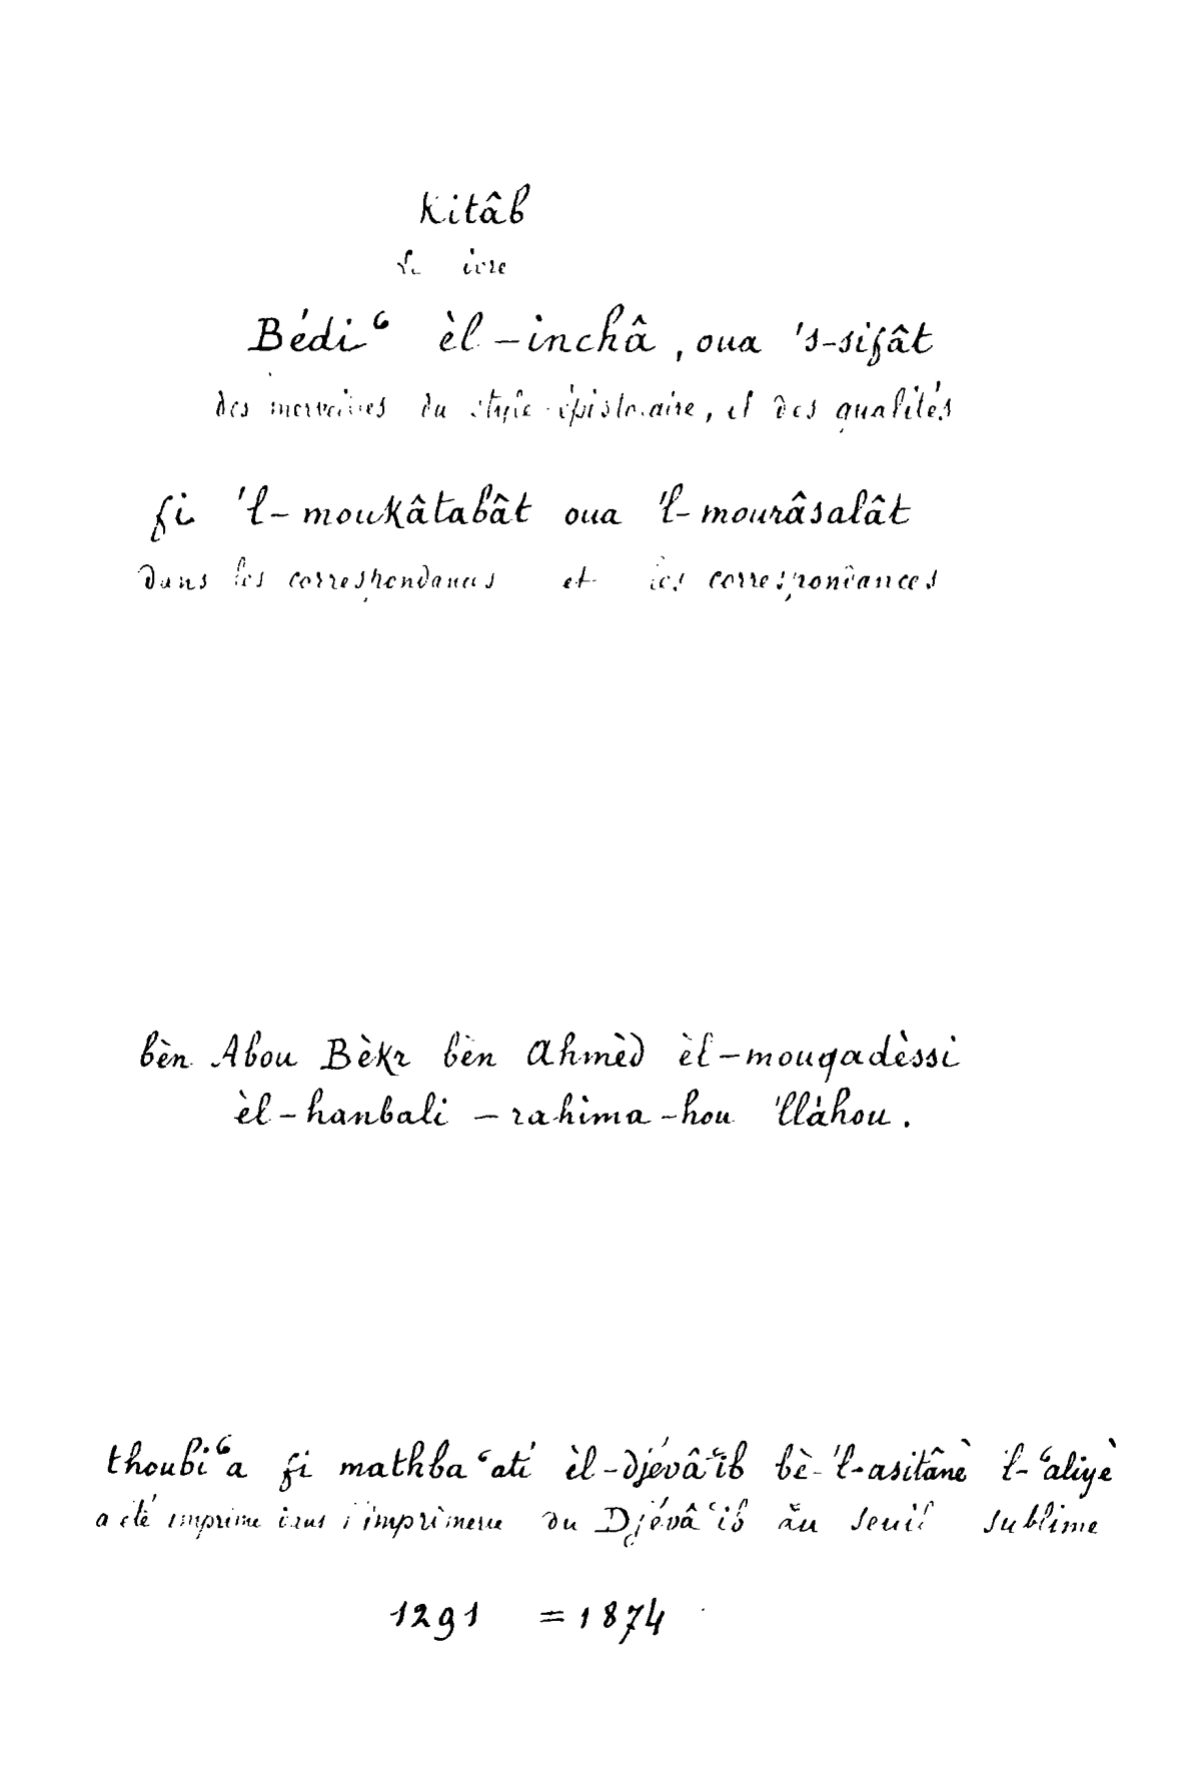 Kitâb
Le livre
Bédiʿ èl-inchâ, oua 's-sifât
des merveilles du style épistolaire, et des qualités
fi 'l-moukâtabât oua 'l-mourâsalât
dans les correspondances et les correspondances
bèn Abou Bèkr bèn Ahmèd èl-mouqadèssi
èl-hanbali - rahima-hou 'llàhou.
thoubiʿa fi mathbaʿati èl-djévâʾib bè-'l-asitânè 'l-ʿaliyè
a été imprimé dans l'imprimerie du Djévâʾib au seuil sublime
1291 = 1874